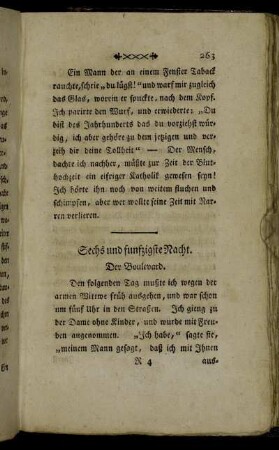 263
Ein Mann der an einem Fenster Taback
rauchte, schrie „du lügst!“ und warf mir zugleich
das Glas, worein er spuckte, nach dem Kopf.
Ich parirte den Wurf, und erwiederte: „Du
bist des Jahrhunderts das du vorziehst wür-
dig, ich aber gehöre zu dem jetzigen und ver-
zeih dir deine Tollheit“ — Der Mensch,
dachte ich nachher, müßte zur Zeit der Blut-
hochzeit ein eifriger Katholik gewesen seyn!
Ich hörte ihn noch von weitem fluchen und
schimpfen, aber wer wollte seine Zeit mit Nar-
ren verlieren.
Sechs und funfzigste Nacht.
Der Boulevard.
Den folgenden Tag mußte ich wegen der
armen Wittwe früh ausgehen, und war schon
um fünf Uhr in den Straßen. Ich gieng zu
der Dame ohne Kinder, und wurde mit Freu-
den angenommen. „Ich habe,“ sagte sie,
„meinem Mann gesagt, daß ich mit Ihnen
R 4 aus-